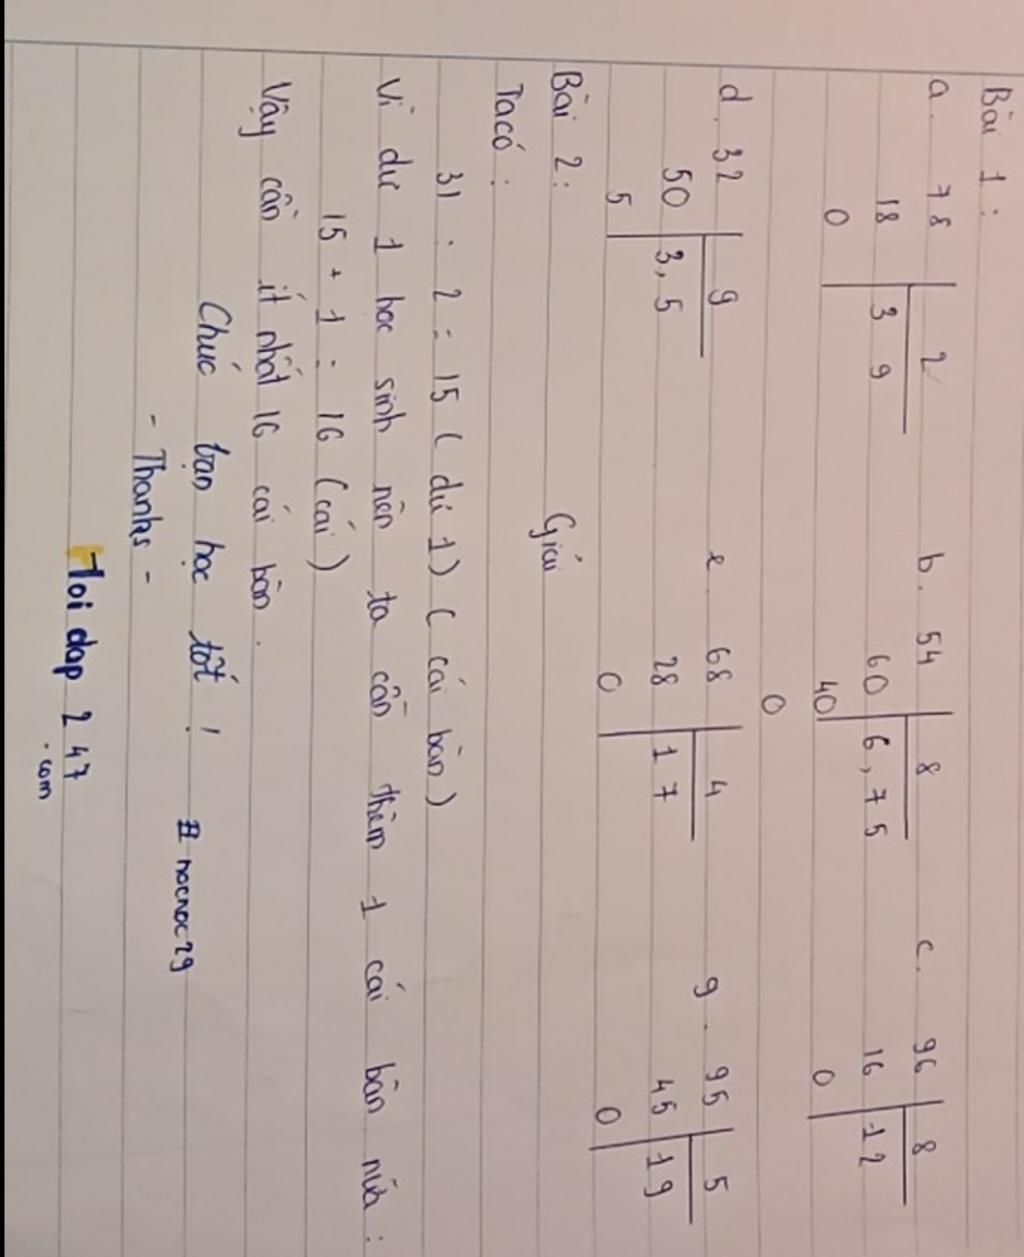 Bài 1:
a. 78 2 b. 54 8 c. 96 8
18 39 60 6,75 16 12
0 40 0
0
d. 32 9 e. 68 4 g. 95 5
50 3,5 28 17 45 19
5 0 0
Bài 2: Giải
Ta có:
31 : 2 = 15 (dư 1) (cái bàn)
Vì dư 1 học sinh nên ta cần thêm 1 cái bàn nữa:
15 + 1 = 16 (cái)
Vậy cần ít nhất 16 cái bàn.
Chúc bạn học tốt! # nocnoc29
- Thanks -
Hoidap247
.com